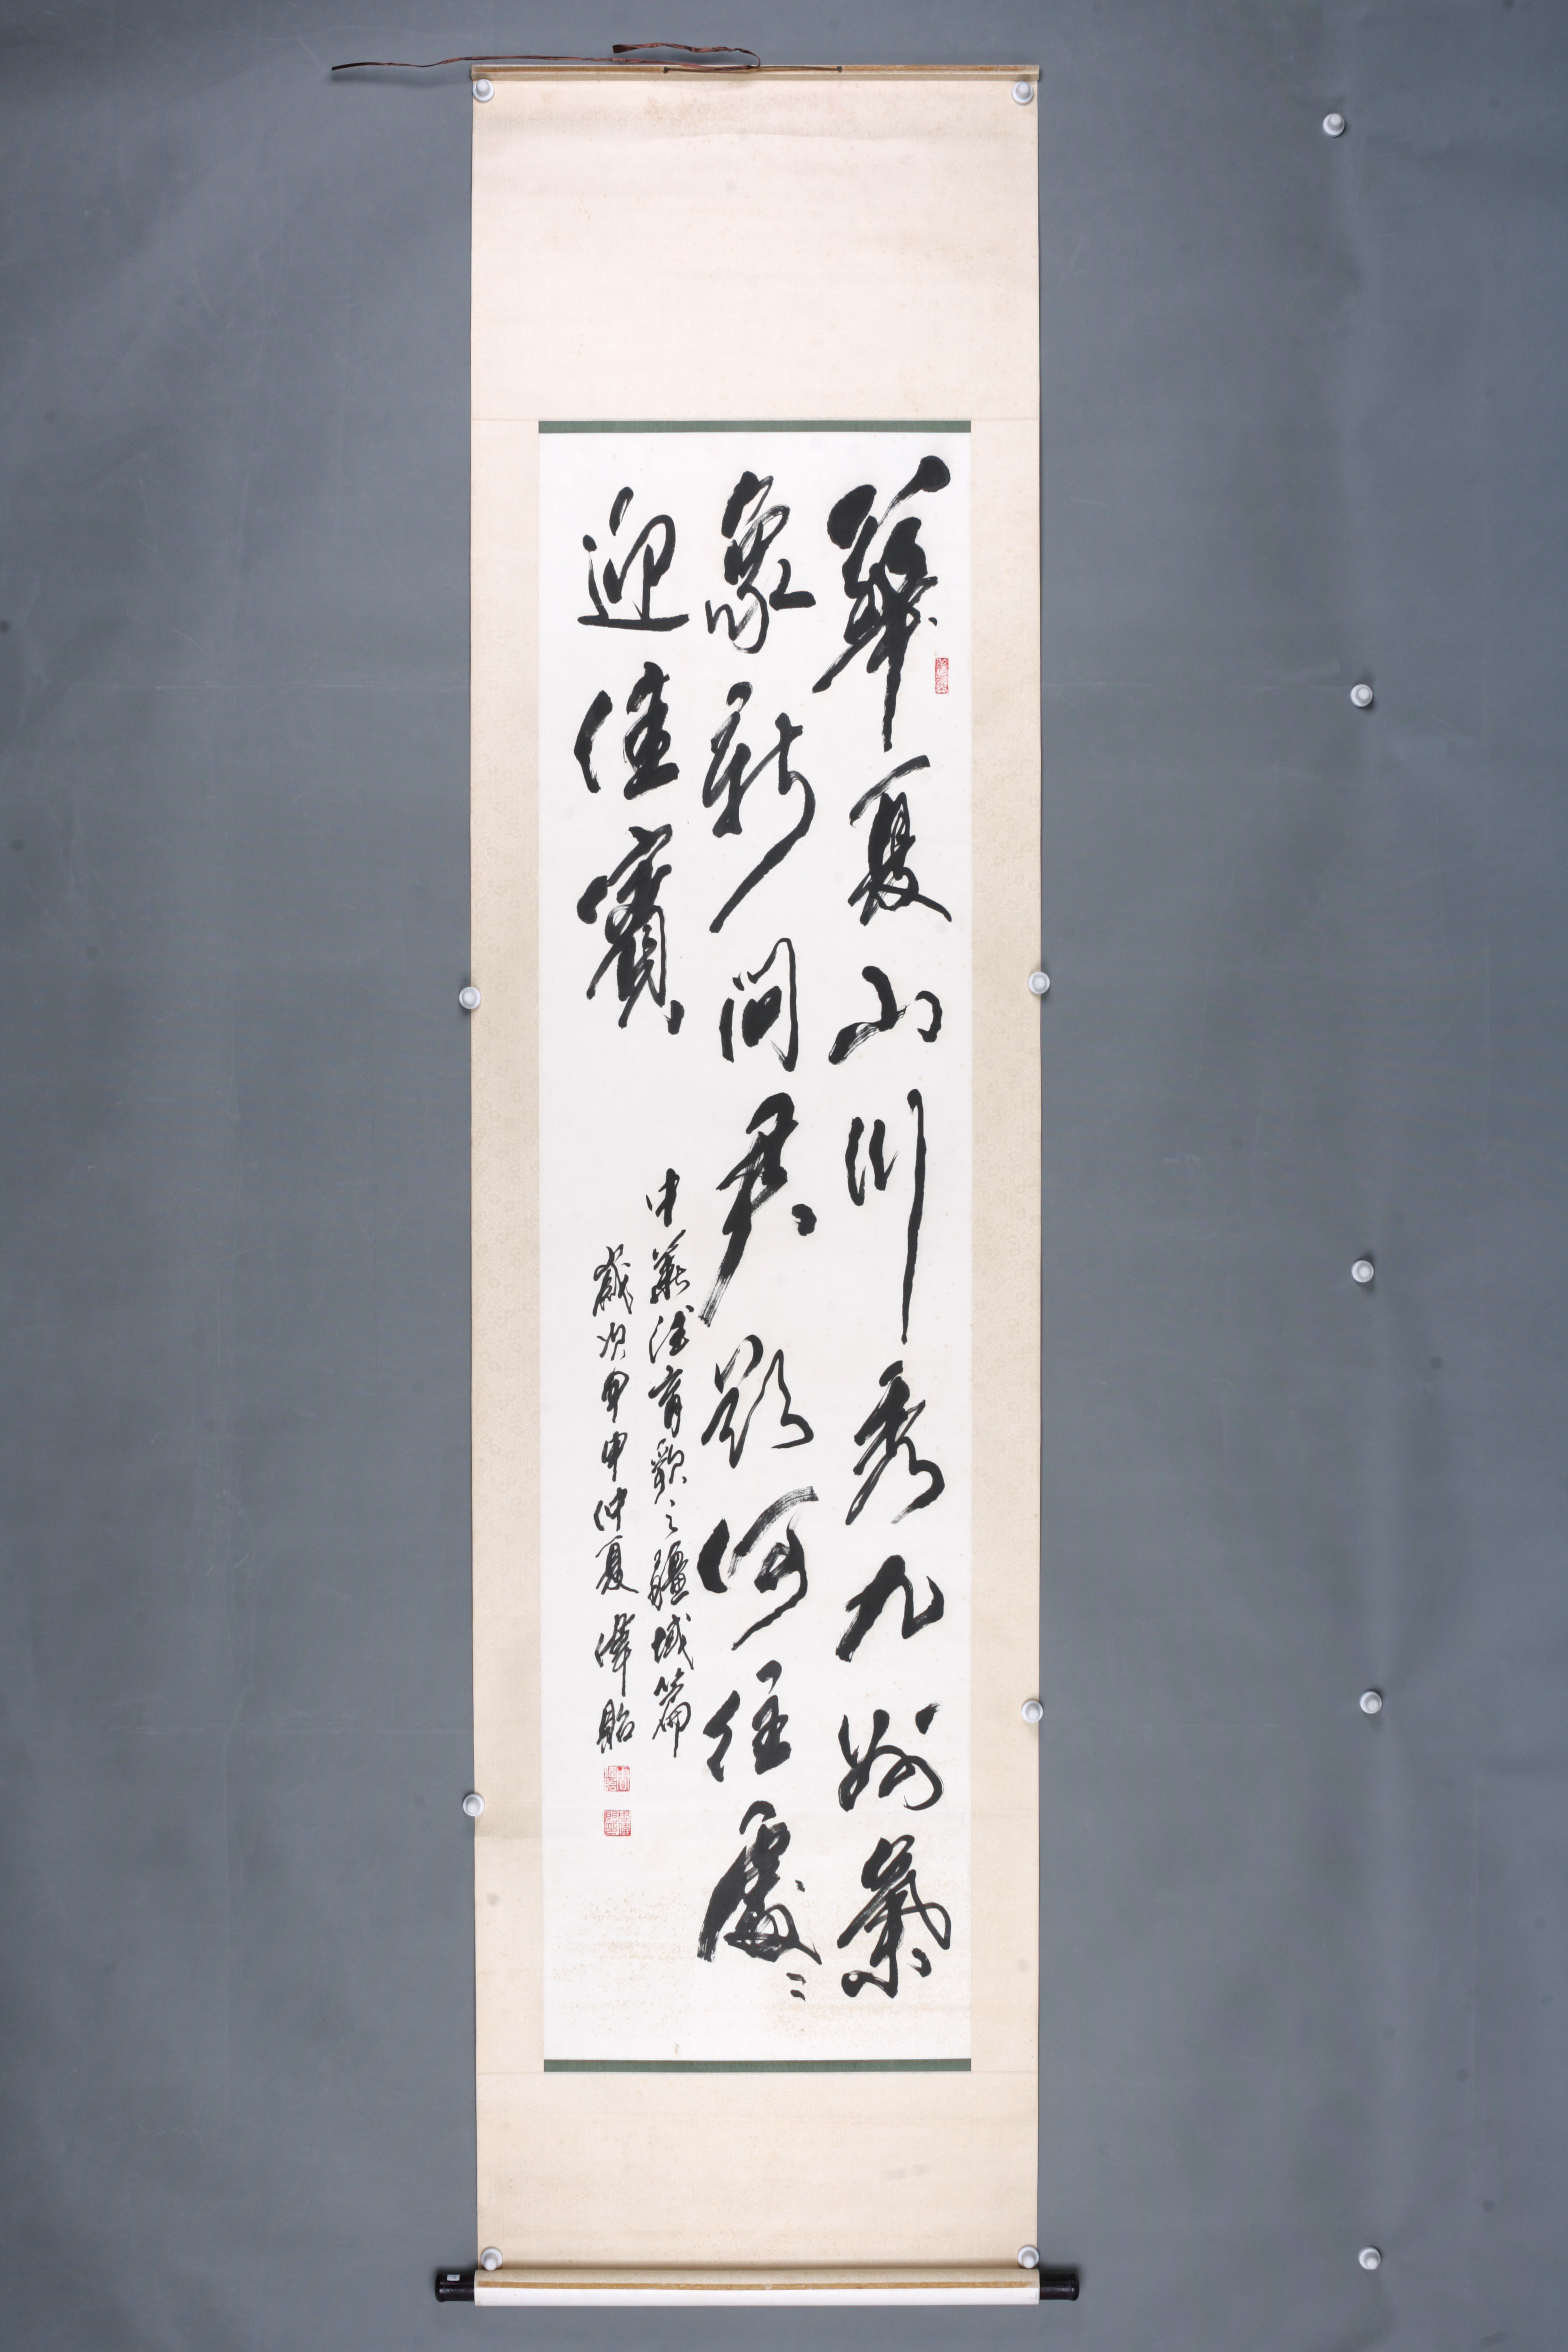 華夏山川秀九州氣
象新問君欲何往處〻
迎佳賓
中華德育歌之疆域篇
歲次甲申仲夏偉貽